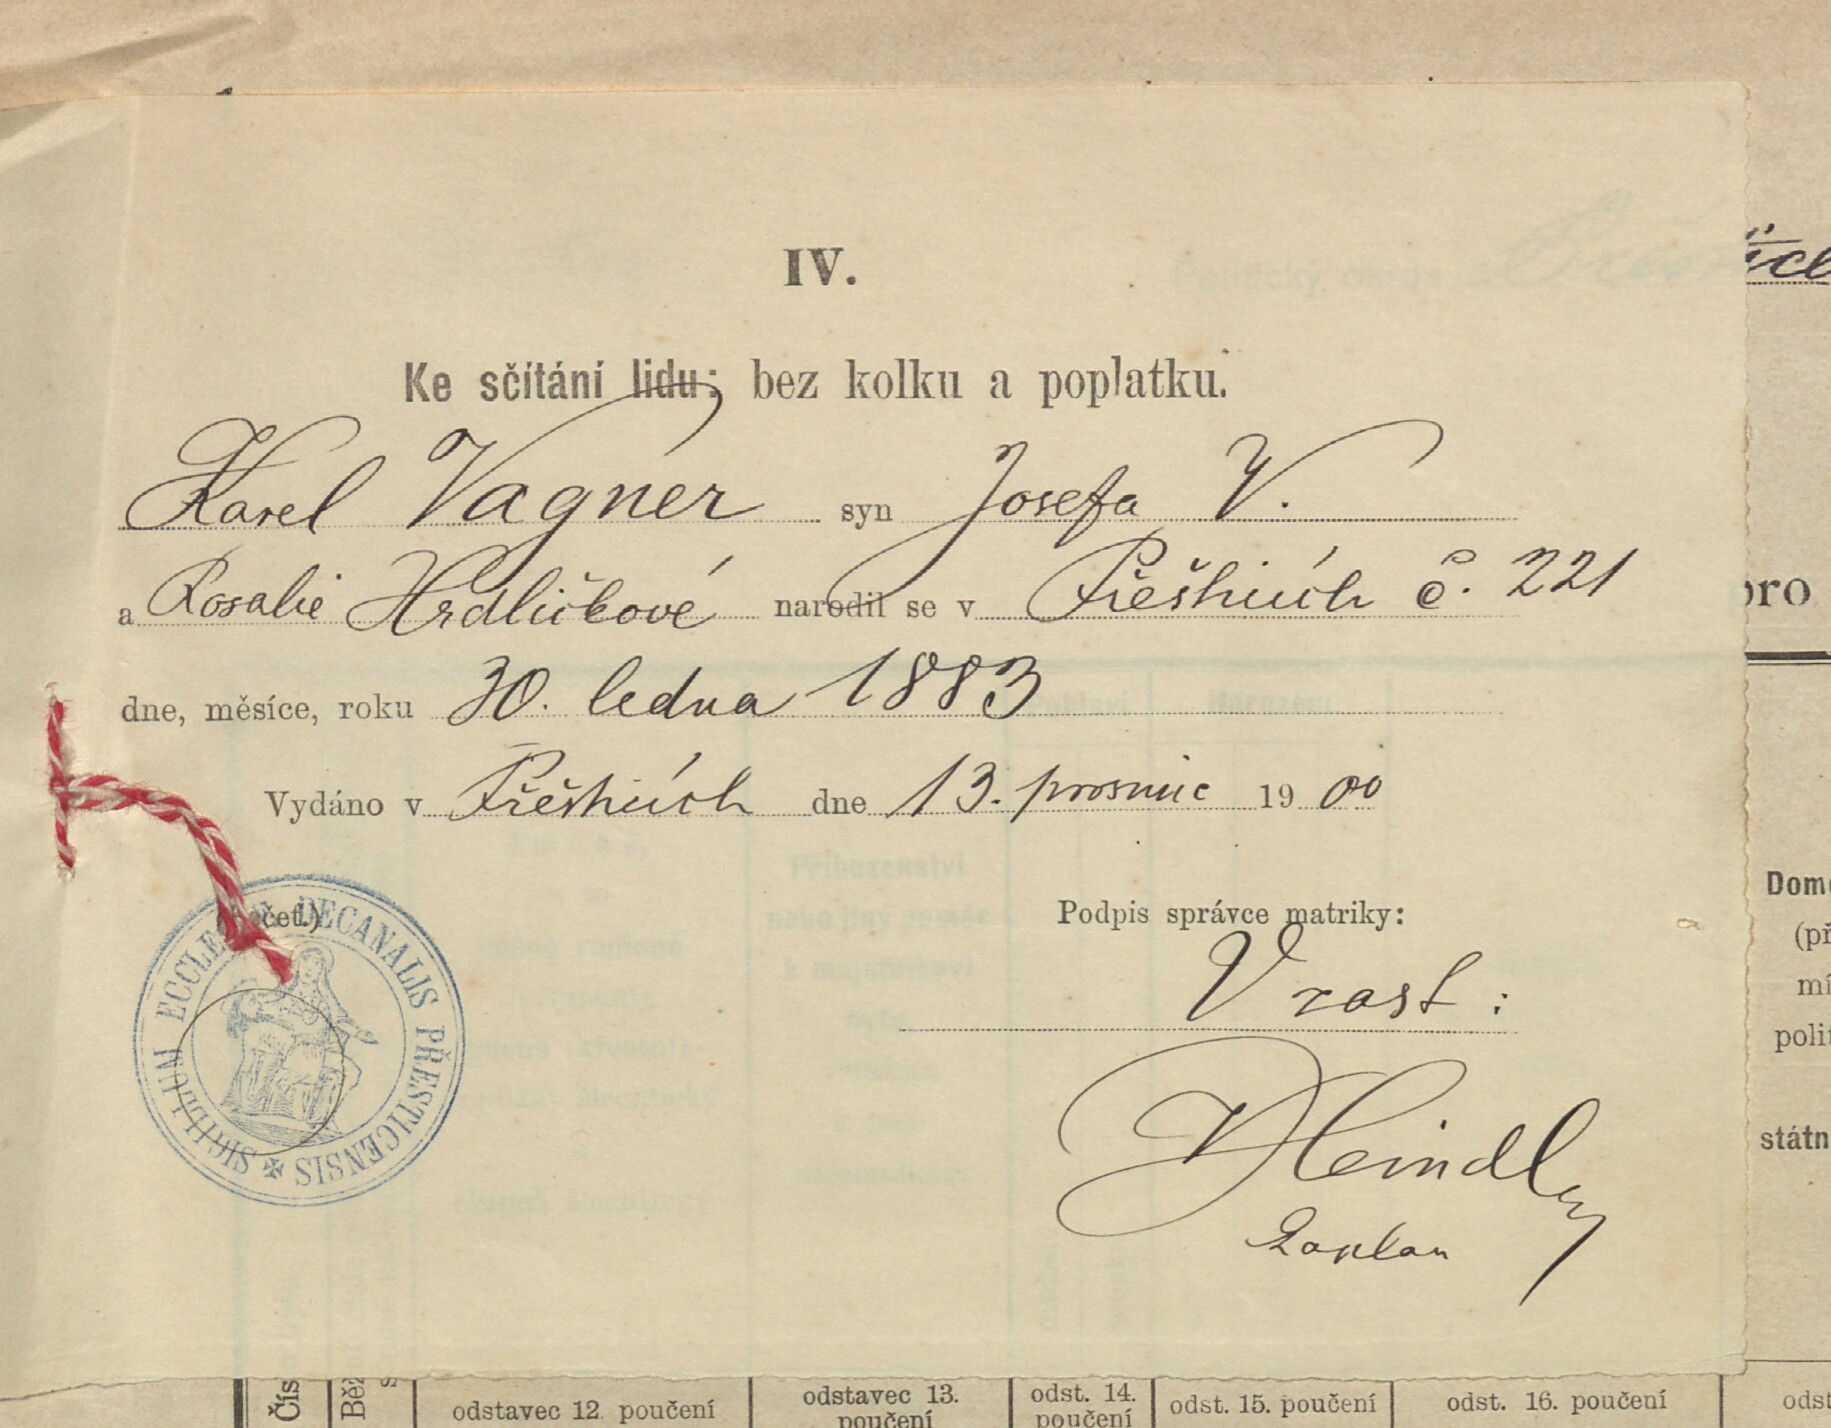 IV.
Ke sčítání lidu: bez kolku a poplatku.
Karel Vagner syn Josefa V.
a Rosalie Hrdličkové narodil se v Přešticích č. 221
dne, měsíce, roku 30. ledna 1883
Vydáno v Přešticích dne 13. prosince 1900
(Pečeť.)
SIGILLUM ECCLESIÆ DECANALIS PŘESTICENSIS
Podpis správce matriky:
V zast:
Heindl
kaplan
pro
státn
odstavec 12 poučení
odstavec 13. poučení
odst. 14. poučení
odst. 15. poučení
odst. 16. poučení